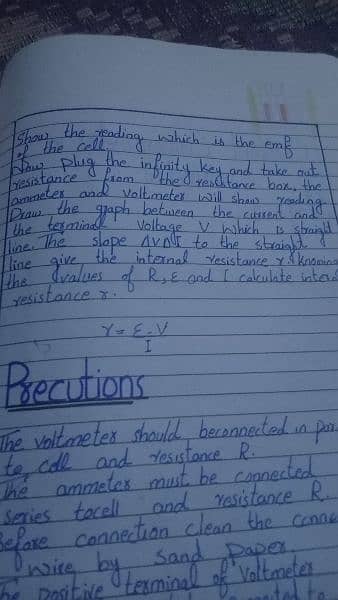 Show the reading which is the emf
of the cell.
Now plug the infinity key and take out
resistance from the resistance box, the
ammeter and voltmeter will show reading
Draw the graph between the current and
the terminal voltage V which is straight
line. The slope ΔV ΔI to the straight
line give the internal resistance r. Knowing
the values of R, E and I calculate
resistance r.
r = E-V
I
Precutions
The voltmeter should beconnected in
to cell and resistance R.
The ammeter must be connected
series tocell and resistance R.
Before connection clean the
wire by sand paper.
The positive terminal of voltmeter
to